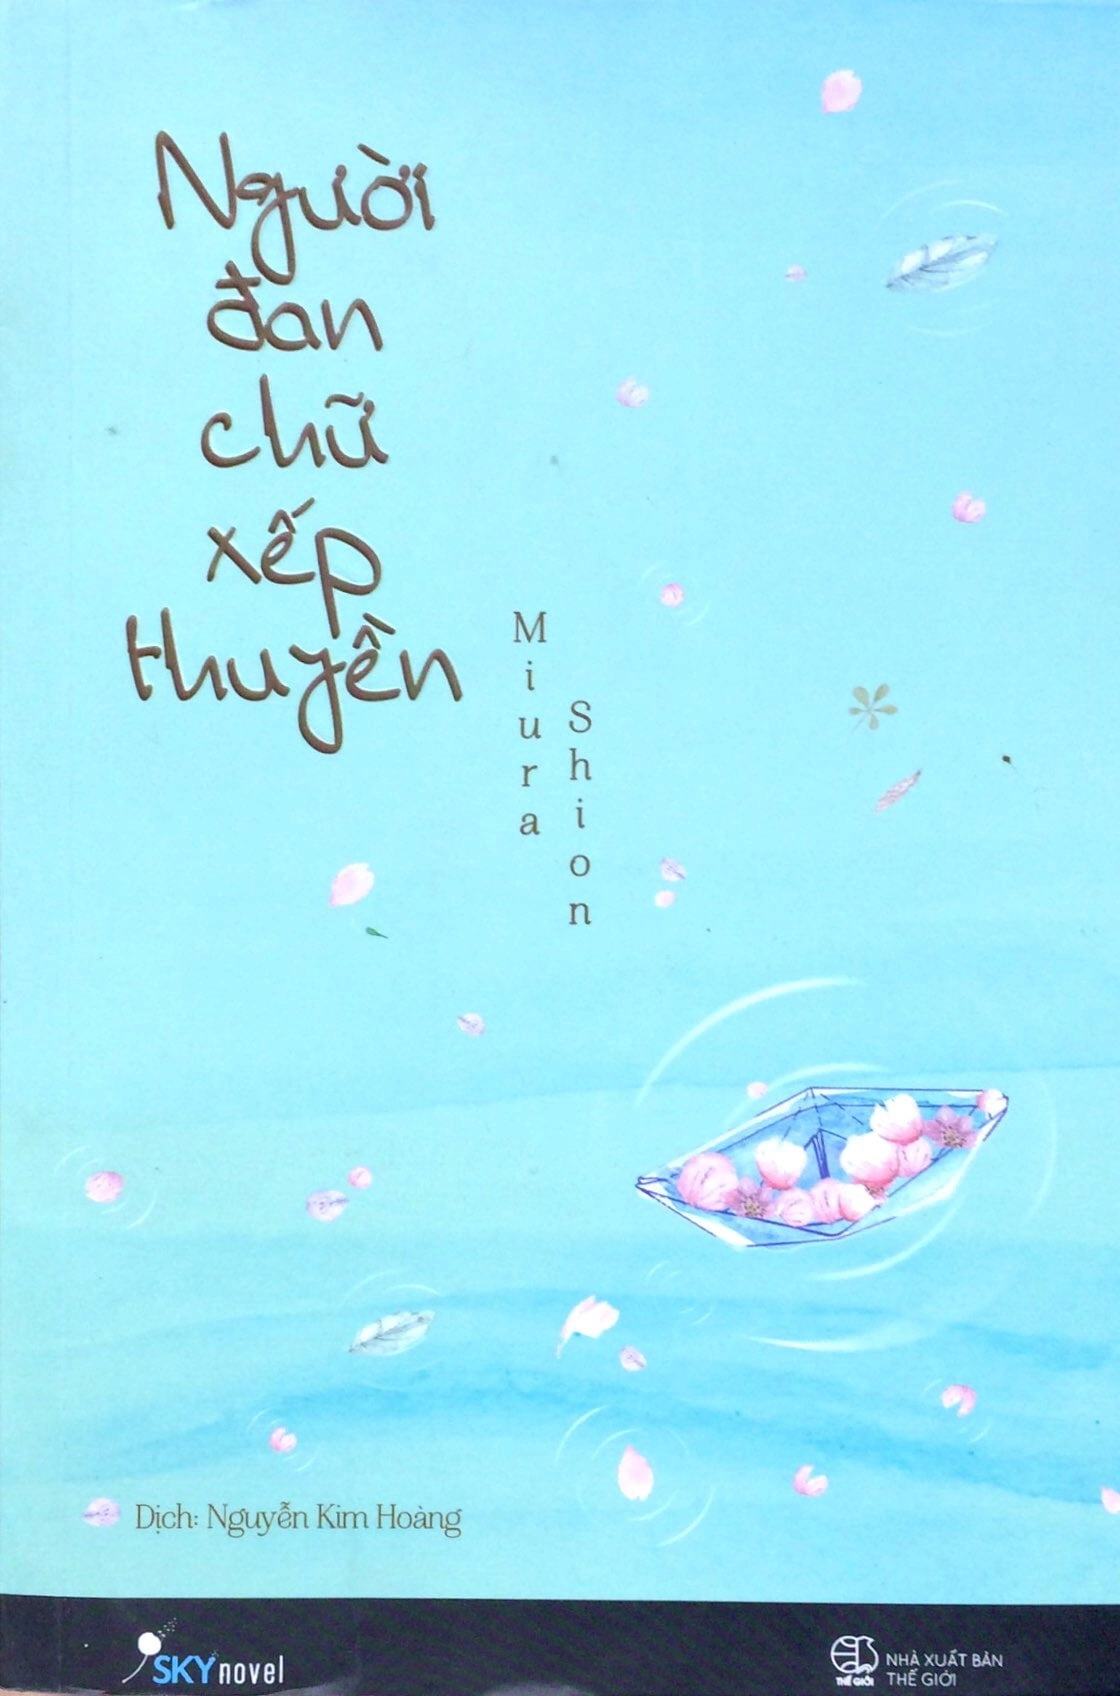 Người
đan
chữ
xếp
thuyền
Miura
Shion
Dịch: Nguyễn Kim Hoàng
SKY novel
THẾ GIỚI
NHÀ XUẤT BẢN
THẾ GIỚI